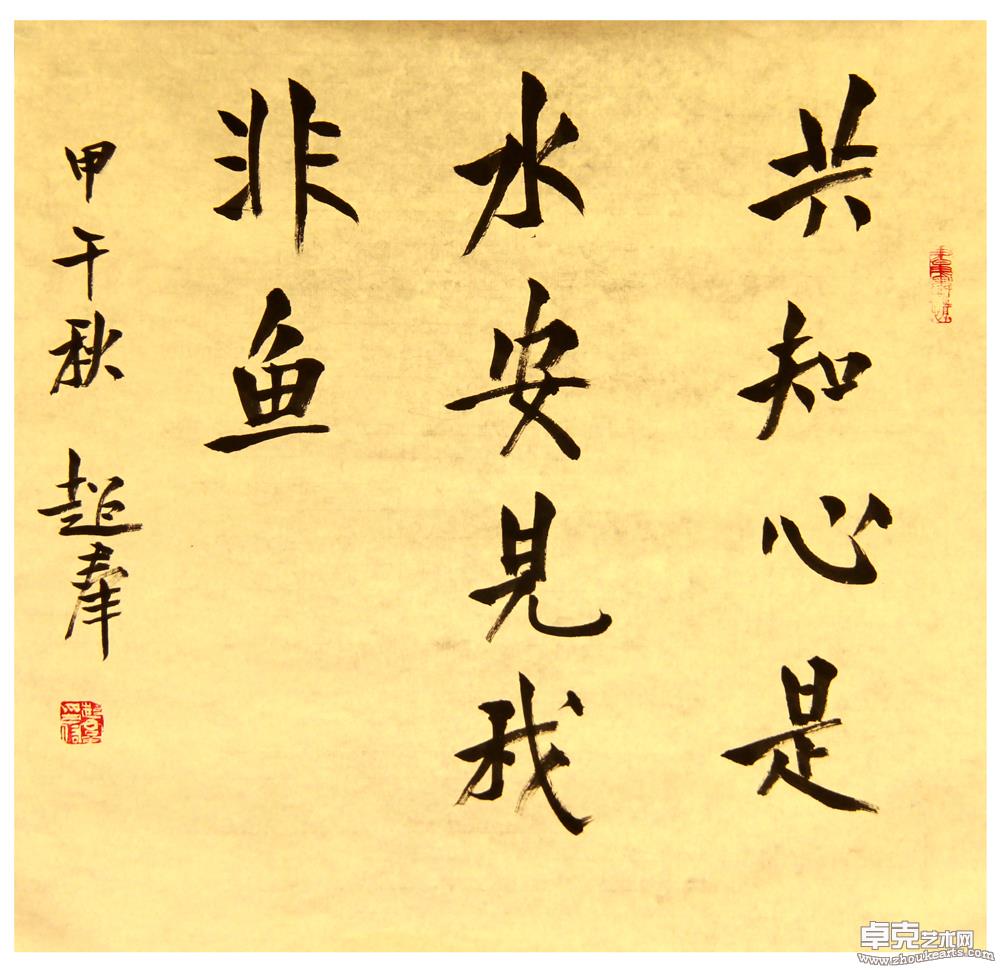 共知心是
水安見我
非鱼
甲午秋 超群
卓克艺术网
www.zhoukearts.com